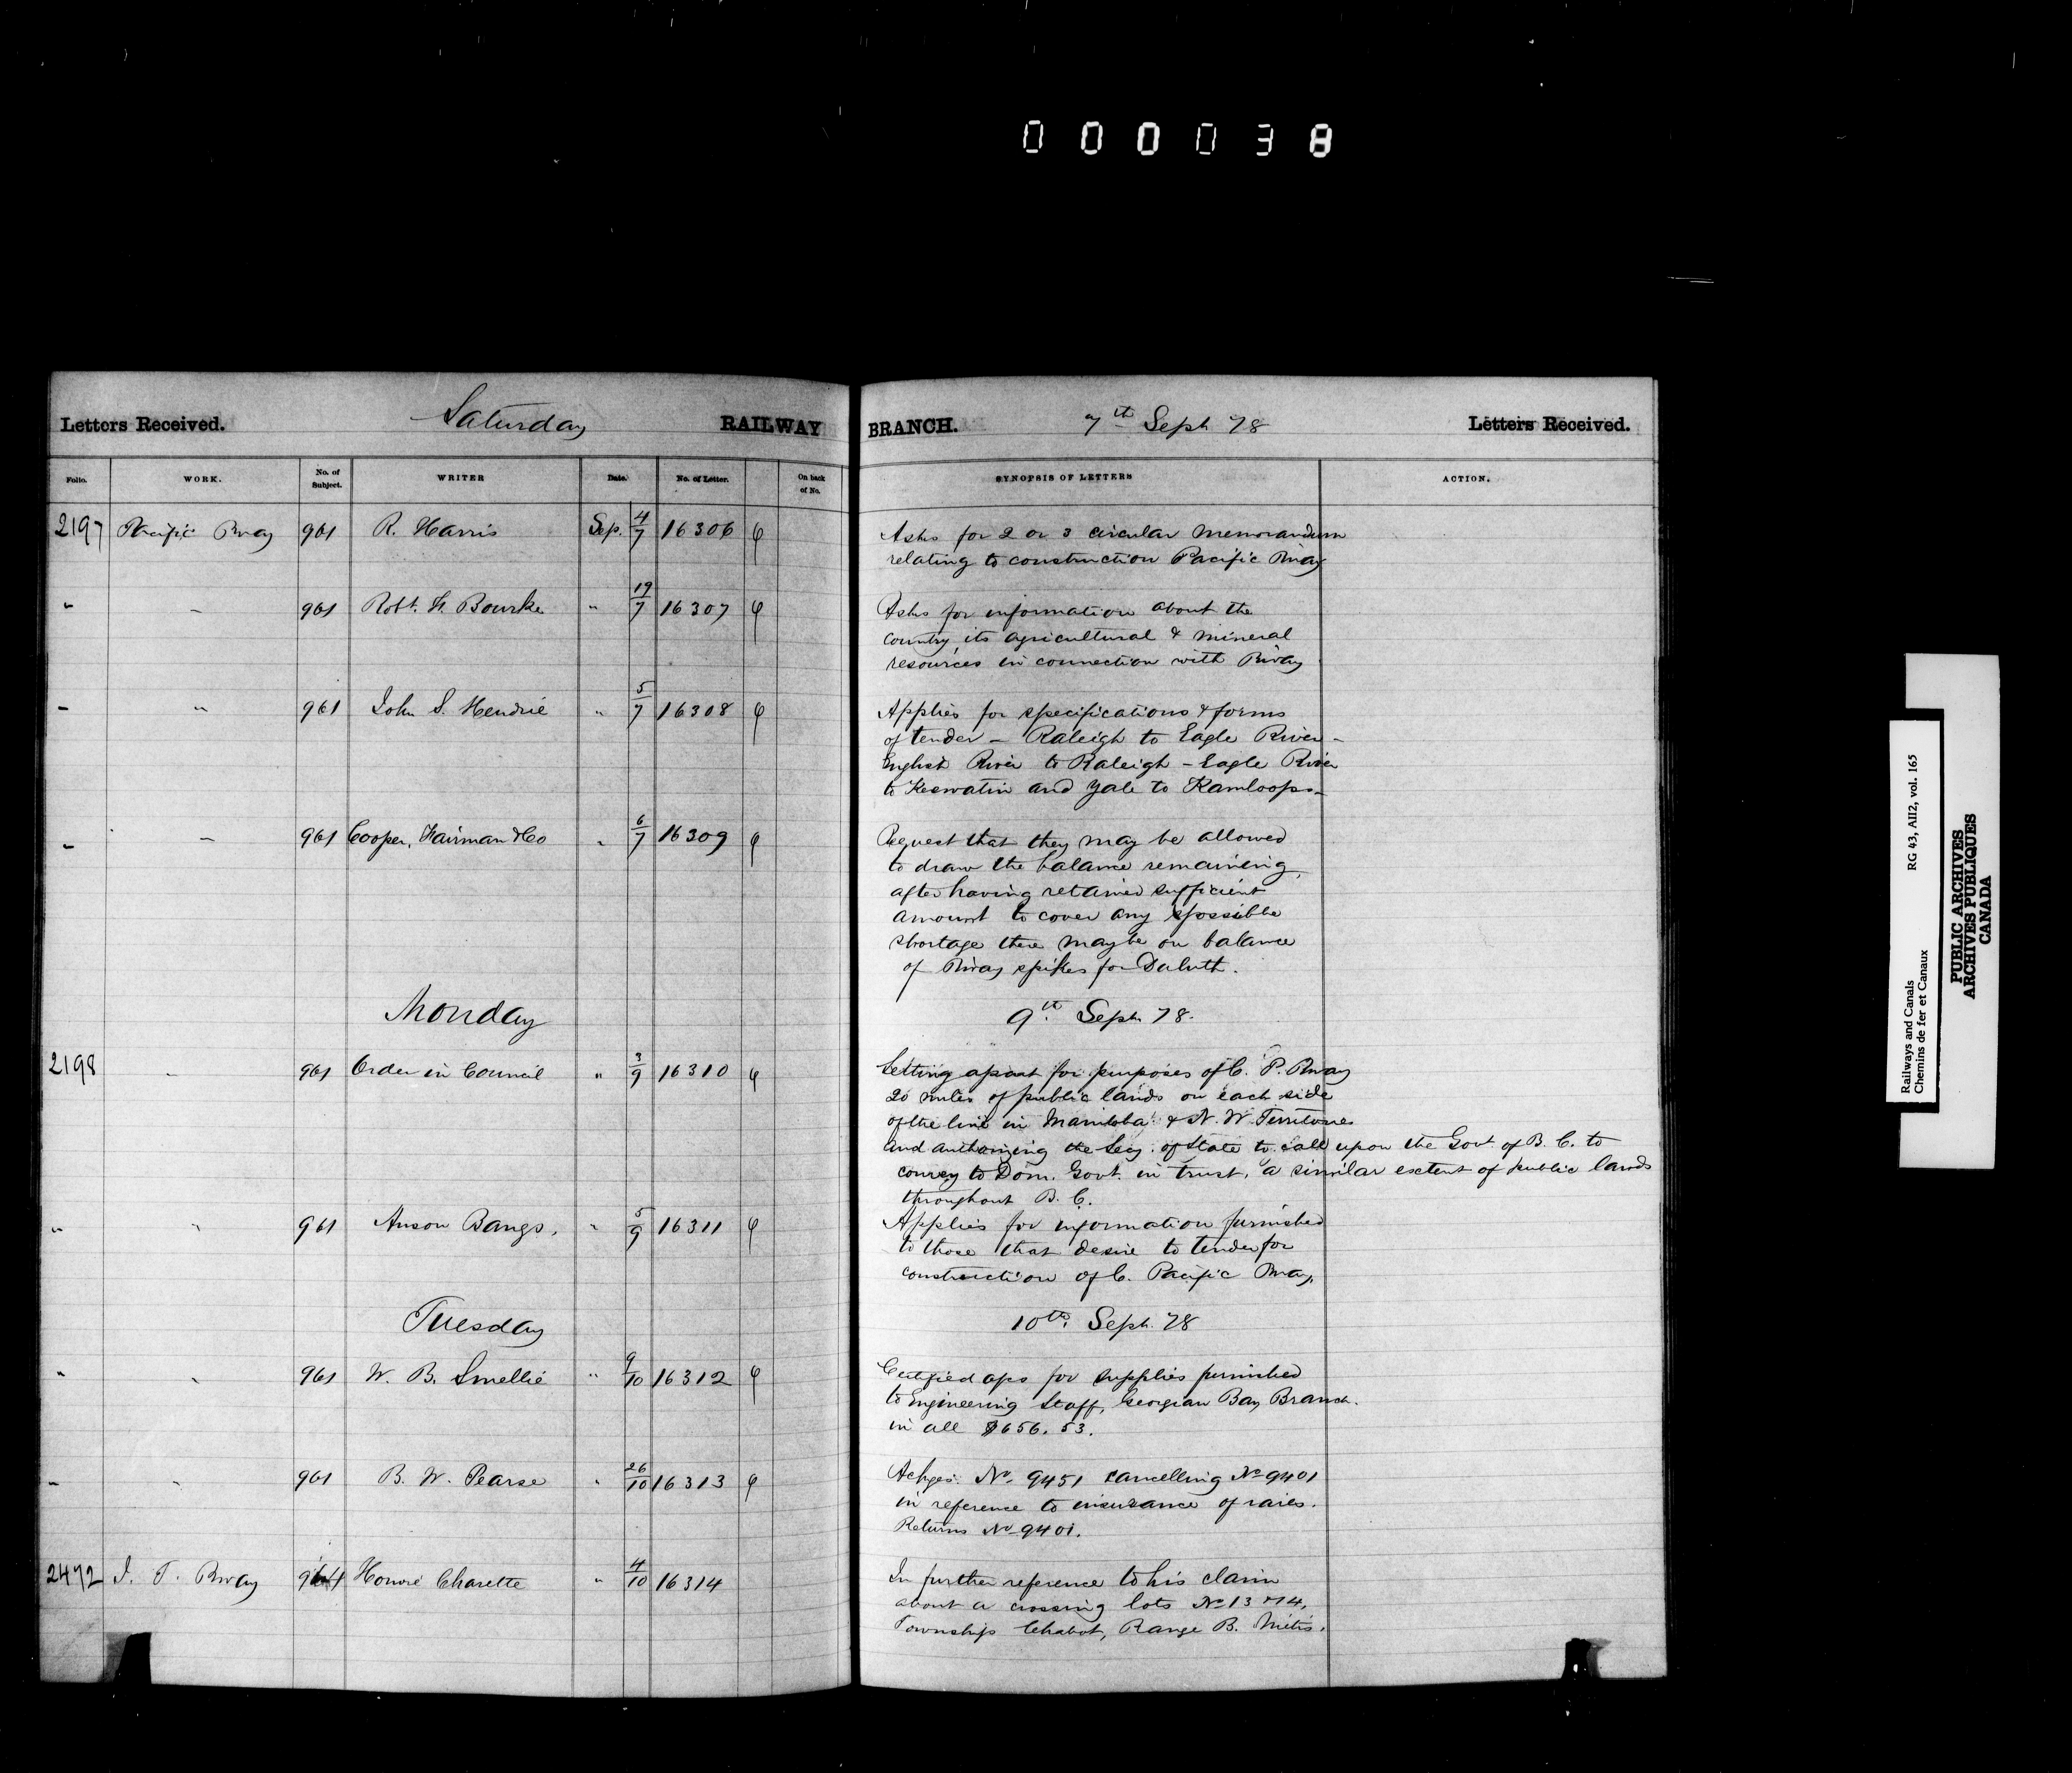 000038
Letters Received. Saturday RAILWAY BRANCH. 7th Sept 78 Letters Received.
Folio. WORK. No. of Subject. WRITER Date. No. of Letter. On back of No. SYNOPSIS OF LETTERS ACTION.
2197 Pacific Rway 961 R. Harris Sep. 4/7 16306 φ Asks for 2 or 3 circular memorandum
relating to construction Pacific Rway
" " 961 Robt. H. Bourke " 19/7 16307 φ Asks for information about the
country, its agricultural & mineral
resources in connection with Rway
" " 961 John S. Hendrie " 5/7 16308 φ Applies for specifications & forms
of tender – Raleigh to Eagle River –
English River to Raleigh – Eagle River
to Keewatin and Yale to Kamloops –
" " 961 Cooper, Fairman & Co " 6/7 16309 φ Request that they may be allowed
to draw the balance remaining,
after having retained sufficient
amount to cover any possible
shortage there may be on balance
of Rway spikes for Duluth.
Monday 9th Sept. 78.
2198 " 961 Order in Council " 3/9 16310 φ Setting apart for purposes of C. P. Rway
20 miles of public lands on each side
of the line in Manitoba & N. W. Territories
and authorizing the Secy. of State to call upon the Govt of B. C. to
convey to Dom. Govt. in trust, a similar extent of public lands
throughout B. C.
" " 961 Anson Bangs. " 5/9 16311 φ Applies for information furnished
to those that desire to tender for
construction of C. Pacific Rway.
Tuesday 10th. Sept. 78
" " 961 W. B. Smellie " 9/10 16312 φ Certified aps for supplies furnished
to Engineering Staff, Georgian Bay Branch.
in all $656.53.
" " 961 B. W. Pearse " 26/10 16313 φ Ackges. No. 9451 cancelling No 9401
in reference to insurance of rails.
Returns No 9401.
2472 I. T. Rway Honoré Charette " 4/10 16314 In further reference to his claim
about a crossing lots No 13 & 14,
Township Chabot, Range B. Métis.
Railways and Canals RG 43, AII2, vol. 165
Chemins de fer et Canaux
PUBLIC ARCHIVES
ARCHIVES PUBLIQUES
CANADA